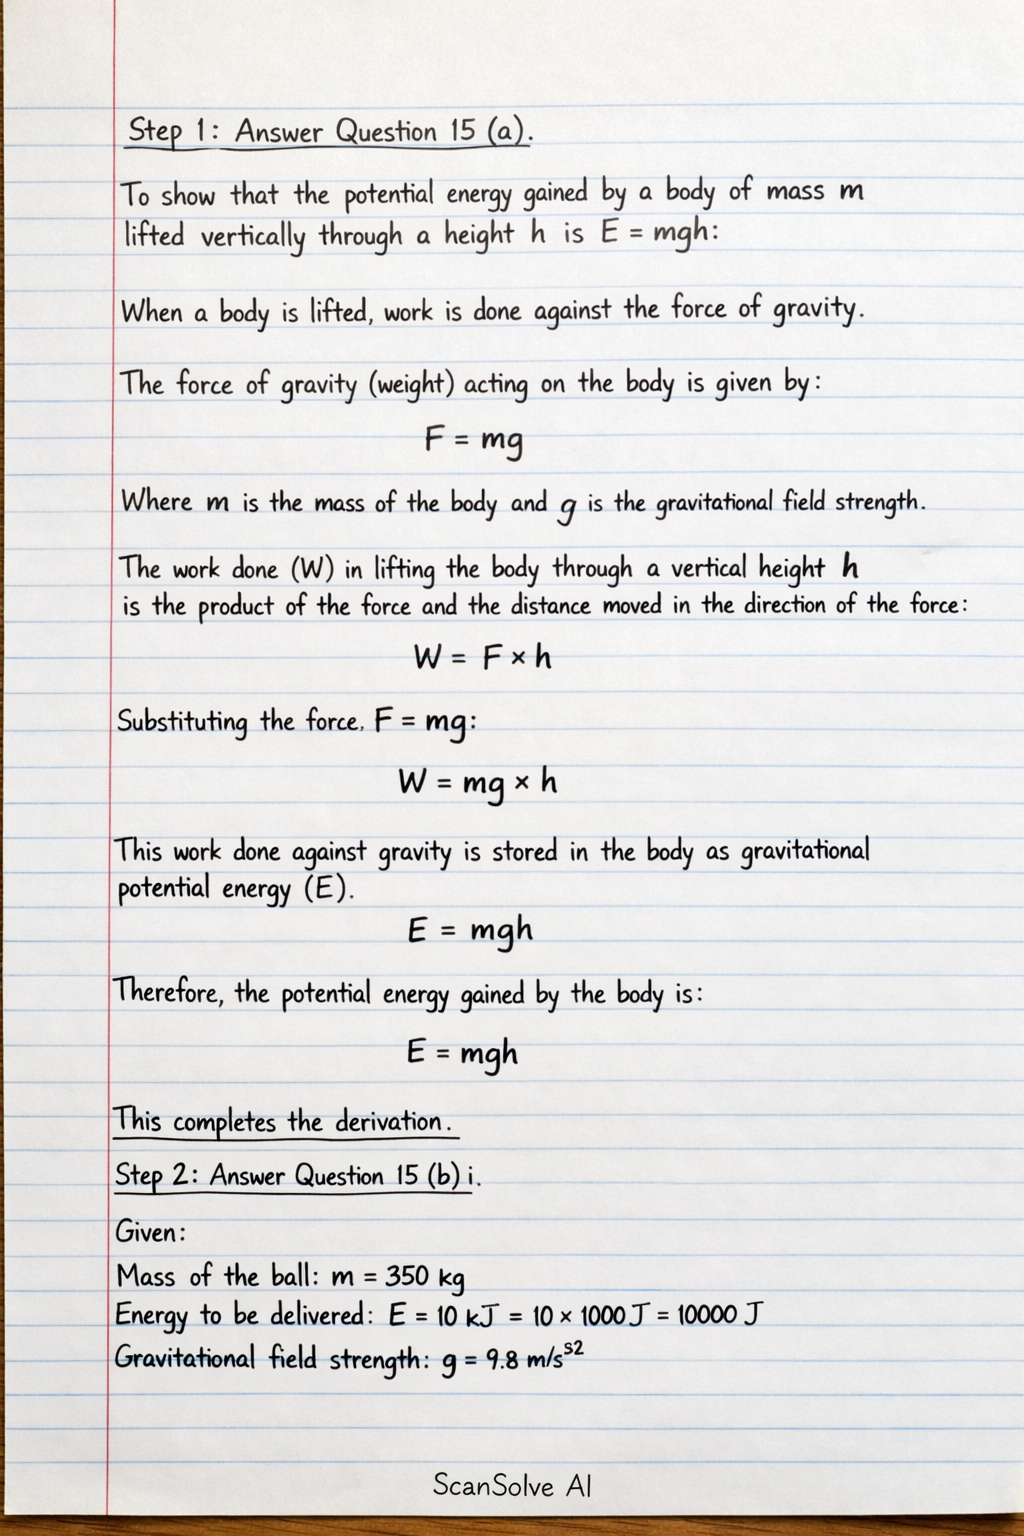 Step 1: Answer Question 15 (a).
To show that the potential energy gained by a body of mass m
lifted vertically through a height h is E = mgh:
When a body is lifted, work is done against the force of gravity.
The force of gravity (weight) acting on the body is given by:
F = mg
Where m is the mass of the body and g is the gravitational field strength.
The work done (W) in lifting the body through a vertical height h
is the product of the force and the distance moved in the direction of the force:
W = F × h
Substituting the force. F = mg:
W = mg × h
This work done against gravity is stored in the body as gravitational
potential energy (E).
E = mgh
Therefore, the potential energy gained by the body is:
E = mgh
This completes the derivation.
Step 2: Answer Question 15 (b) i.
Given:
Mass of the ball: m = 350 kg
Energy to be delivered: E = 10 kJ = 10 × 1000 J = 10000 J
Gravitational field strength: g = 9.8 m/s^s2
ScanSolve AI